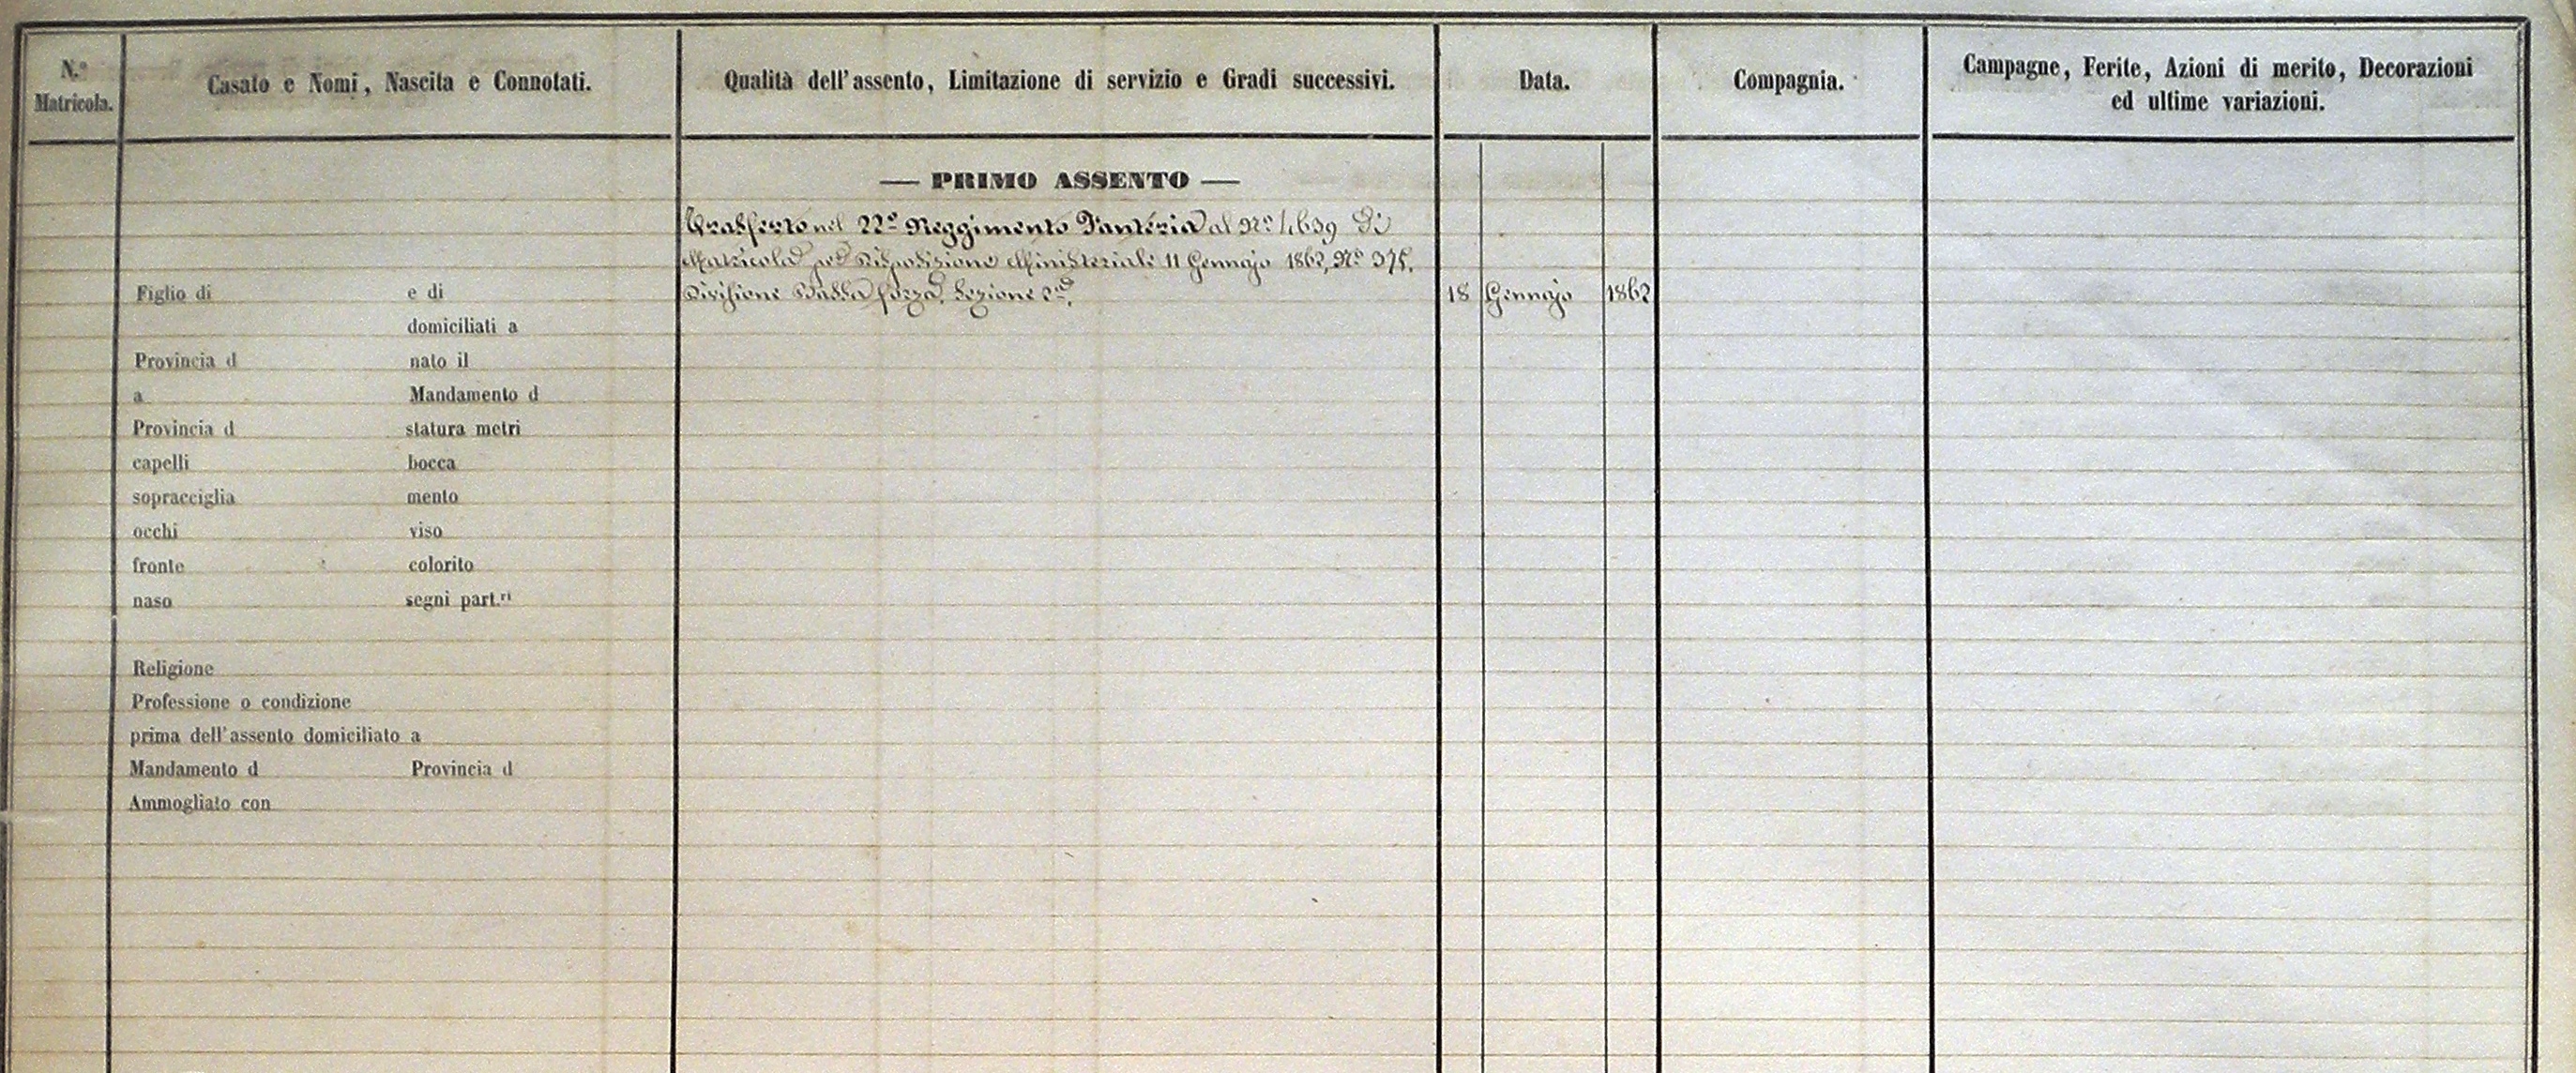 N.º Matricola.
Casato e Nomi, Nascita e Connotati.
Qualità dell'assento, Limitazione di servizio e Gradi successivi.
Data.
Compagnia.
Campagne, Ferite, Azioni di merito, Decorazioni
ed ultime variazioni.
— PRIMO ASSENTO —
Trasferto nel 22º Reggimento Fanteria al Nº 4639 di
Matricola per Disposizione Ministeriale 11 Gennajo 1862, Nº 375.
Divisione Bassa forza, Sezione 2ª.
18 Gennajo 1862
Figlio di e di
domiciliati a
Provincia d nato il
a Mandamento d
Provincia d statura metri
capelli bocca
sopracciglia mento
occhi viso
fronte colorito
naso segni part.ri
Religione
Professione o condizione
prima dell'assento domiciliato a
Mandamento d Provincia d
Ammogliato con